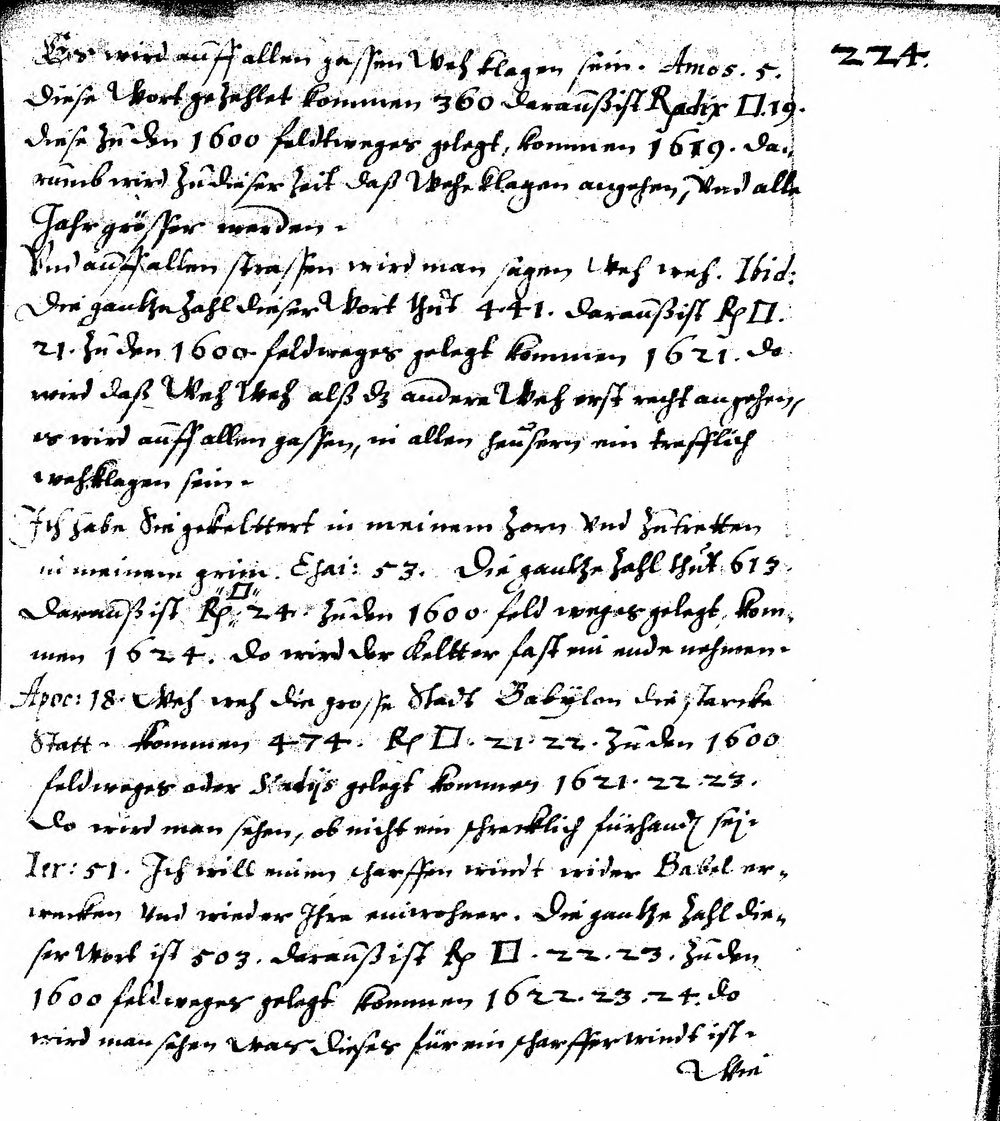 224.
Es wird auff allen gassen Weh klagen sein. Amos. 5.
Diese Wort gezehlet kommen 360 darauß ist Radix □.19.
diese zu den 1600 feldtweges gelegt, kommen 1619. da-
rumb wird zu dieser Zeit daß Wehe klagen angehen, Vnd alle
Jahr grösser werden.
Vnd auff allen strassen wird man sagen Weh weh. Ibid:
Die gantze Zahl dieser Wort thut 441. darauß ist R □.
21. zu den 1600 feldweges gelegt kommen 1621. do
wird daß Weh Weh alß dz andere Weh erst recht angehen,
es wird auff allen gassen, in allen heusern ein trefflich
wehklagen sein.
Ich habe Sie gekelttert in meinem Zorn Vnd Zutretten
in meinem grim. Esai: 53. Die gantze Zahl thut 613.
darauß ist R □ 24. zu den 1600 feld weges gelegt, kom-
men 1624. do wird der Keltter fast ein ende nehmen.
Apoc: 18. Weh weh die grosse Stadt Babylon die starcke
Statt. kommen 474. R □. 21. 22. zu den 1600
feldweges oder Stadijs gelegt kommen 1621. 22. 23.
Do wird man sehen, ob nicht ein schrecklich fürhand sej.
Ier: 51. Ich will einen scharffen windt wider Babel er-
wecken Vnd wieder Ihre einwohner. Die gantze Zahl die-
ser Wort ist 503. darauß ist R □. 22. 23. zu den
1600 feldweges gelegt kommen 1622. 23. 24. do
wird man sehen was dieses für ein scharffer windt ist.
Wie